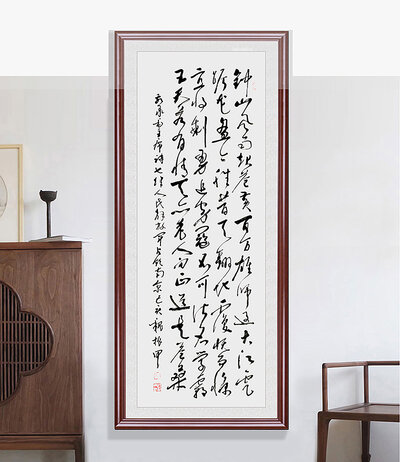 鍾山风雨起苍黄百万雄师过大江虎
踞龙盘今胜昔天翻地覆慨而慷
宜将剩勇追穷寇不可沽名学霸
王天若有情天亦老人间正道是苍桑
录毛主席诗七律人民解放军占领南京